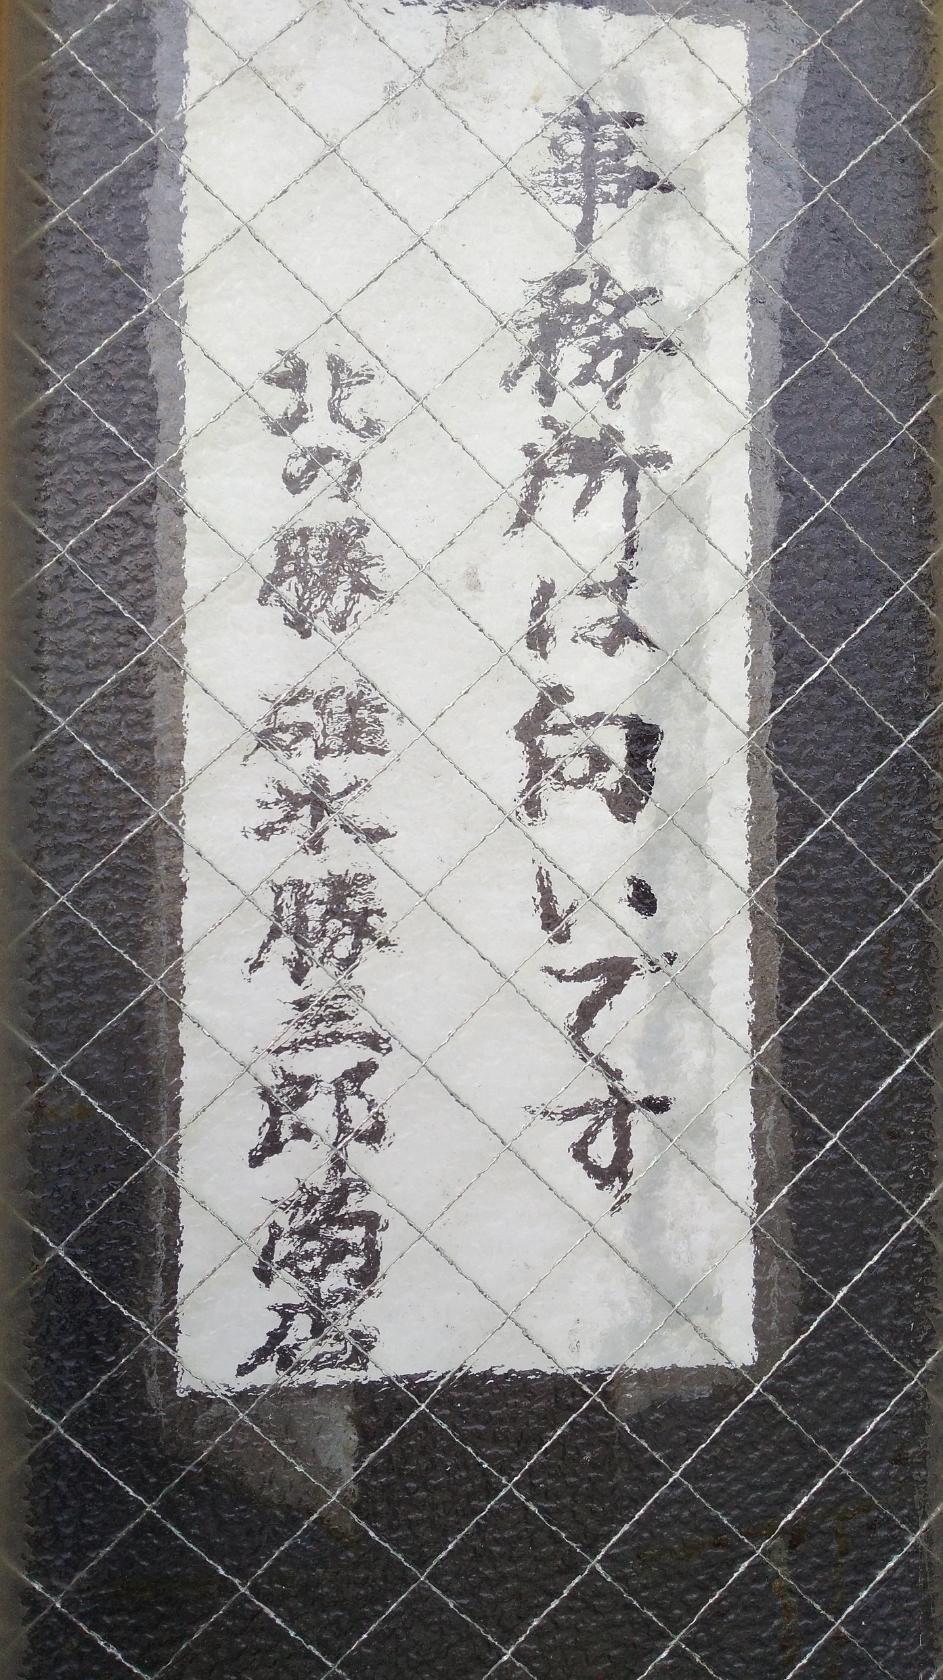 事務所は向いです
北の勝 碓氷勝三郎商店